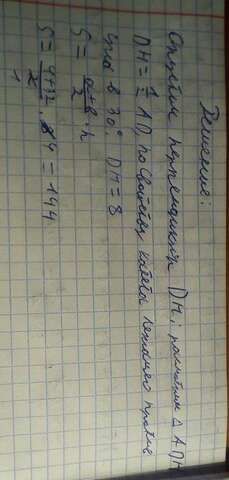 Решение:
Опустим перпендикуляр DH; рассмотрим △ ADH
DH = 1/2 AD, по свойству катета лежащего против
угла в 30°. DH = 8
S = a+b/2 · h
S = 4+32/2 · 4 = 144
1